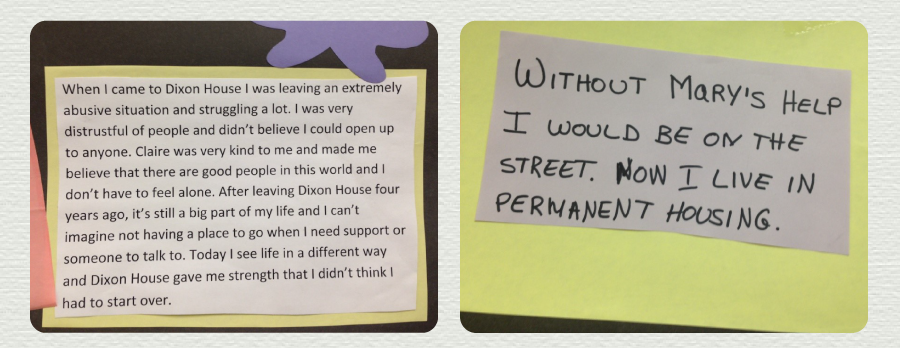 When I came to Dixon House I was leaving an extremely
abusive situation and struggling a lot. I was very
distrustful of people and didn't believe I could open up
to anyone. Claire was very kind to me and made me
believe that there are good people in this world and I
don't have to feel alone. After leaving Dixon House four
years ago, it's still a big part of my life and I can't
imagine not having a place to go when I need support or
someone to talk to. Today I see life in a different way
and Dixon House gave me strength that I didn't think I
had to start over.
WITHOUT MARY'S HELP
I WOULD BE ON THE
STREET. NOW I LIVE IN
PERMANENT HOUSING.